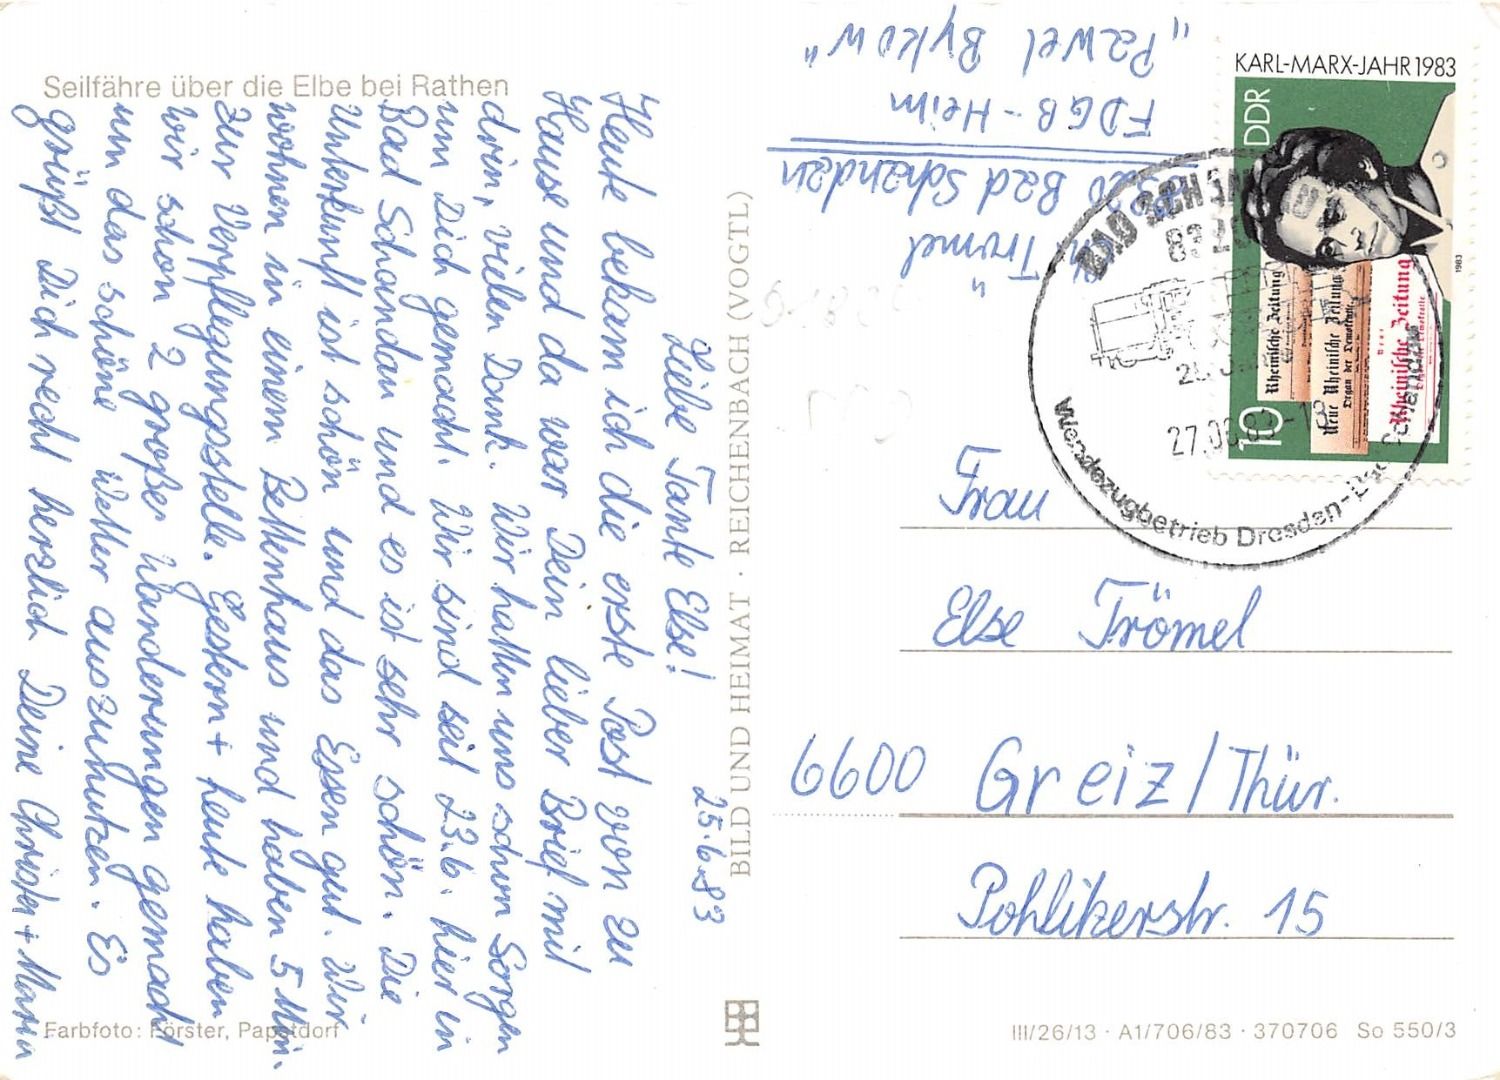 Seilfähre über die Elbe bei Rathen
25.6.83
Liebe Tante Else!
Heute bekam ich die erste Post von zu
Hause und da war Dein lieber Brief mit
drin, vielen Dank. Wir hatten uns schon Sorgen
um Dich gemacht. Wir sind seit 23.6. hier in
Bad Schandau und es ist sehr schön. Die
Unterkunft ist schön und das Essen gut. Wir
wohnen in einem Bettenhaus und haben 5 Min.
zur Verpflegungsstelle. Gestern + heute haben
wir schon 2 große Wanderungen gemacht
um das schöne Wetter auszunutzen. Es
grüßt Dich recht herzlich Deine Christa + Mann
Farbfoto: Förster, Papstdorf
BILD UND HEIMAT · REICHENBACH (VOGTL)
Trömel
8320 Bad Schandau
FDGB-Heim
"Pawel Bykow"
KARL-MARX-JAHR 1983
DDR
10
1983
Rheinische Zeitung
Neue Rheinische Zeitung
Organ der Demokratie
Rheinische Zeitung
BAD SCHANDAU
8320
27.06.83-18
Wendezugbetrieb Dresden-Bad Schandau
Frau
Else Trömel
6600 Greiz/Thür.
Pohlitzerstr. 15
III/26/13 · A1/706/83 · 370706 So 550/3